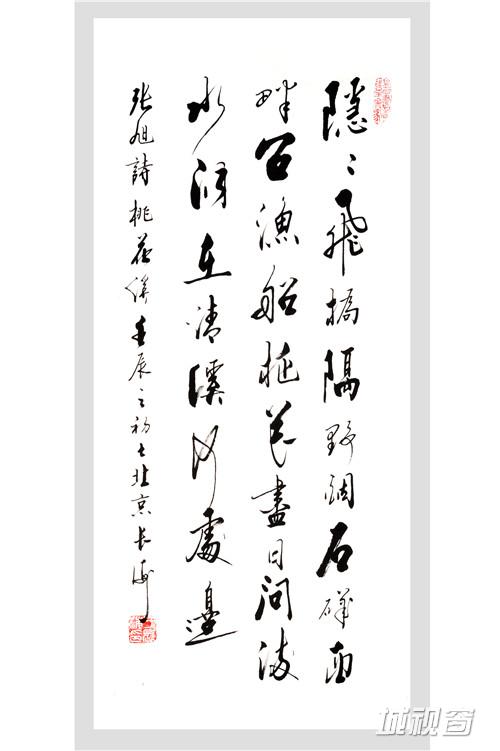 隱〻飛橋隔野烟石磯西
畔漁船桃花盡日問流
水洞在清溪何處邊
張旭詩桃花溪壬辰之初北京長海
城视窗